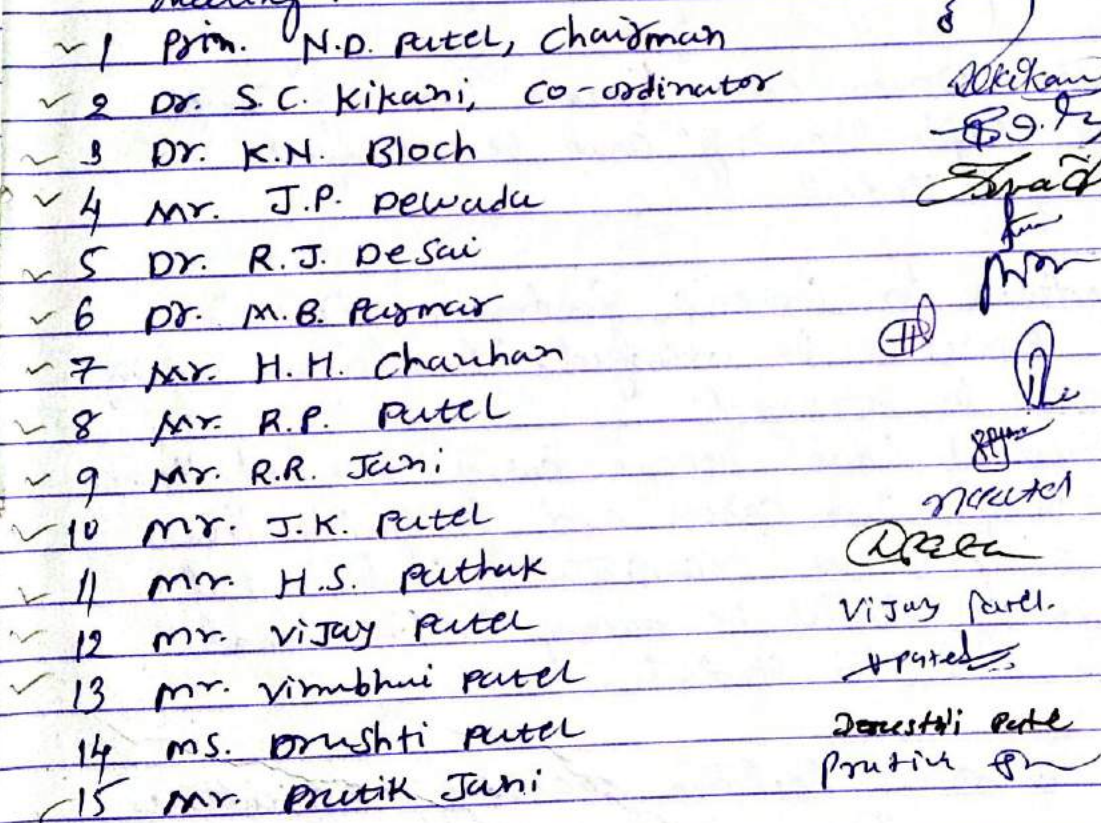 meeting
1 Prin. N.D. Patel, Chairman
2 Dr. S.C. Kikani, Co-ordinator
3 Dr. K.N. Bloch
4 Mr. J.P. Dewada
5 Dr. R.J. Desai
6 Dr. M.B. Parmar
7 Mr. H.H. Chauhan
8 Mr. R.P. Patel
9 Mr. R.R. Jani
10 Mr. J.K. Patel
11 Mr. H.S. Pathak
12 Mr. Vijay Patel Vijay Patel.
13 Mr. Virubhai Patel
14 Ms. Drushti Patel Drusthi Patel
15 Mr. Pratik Jani Pratik